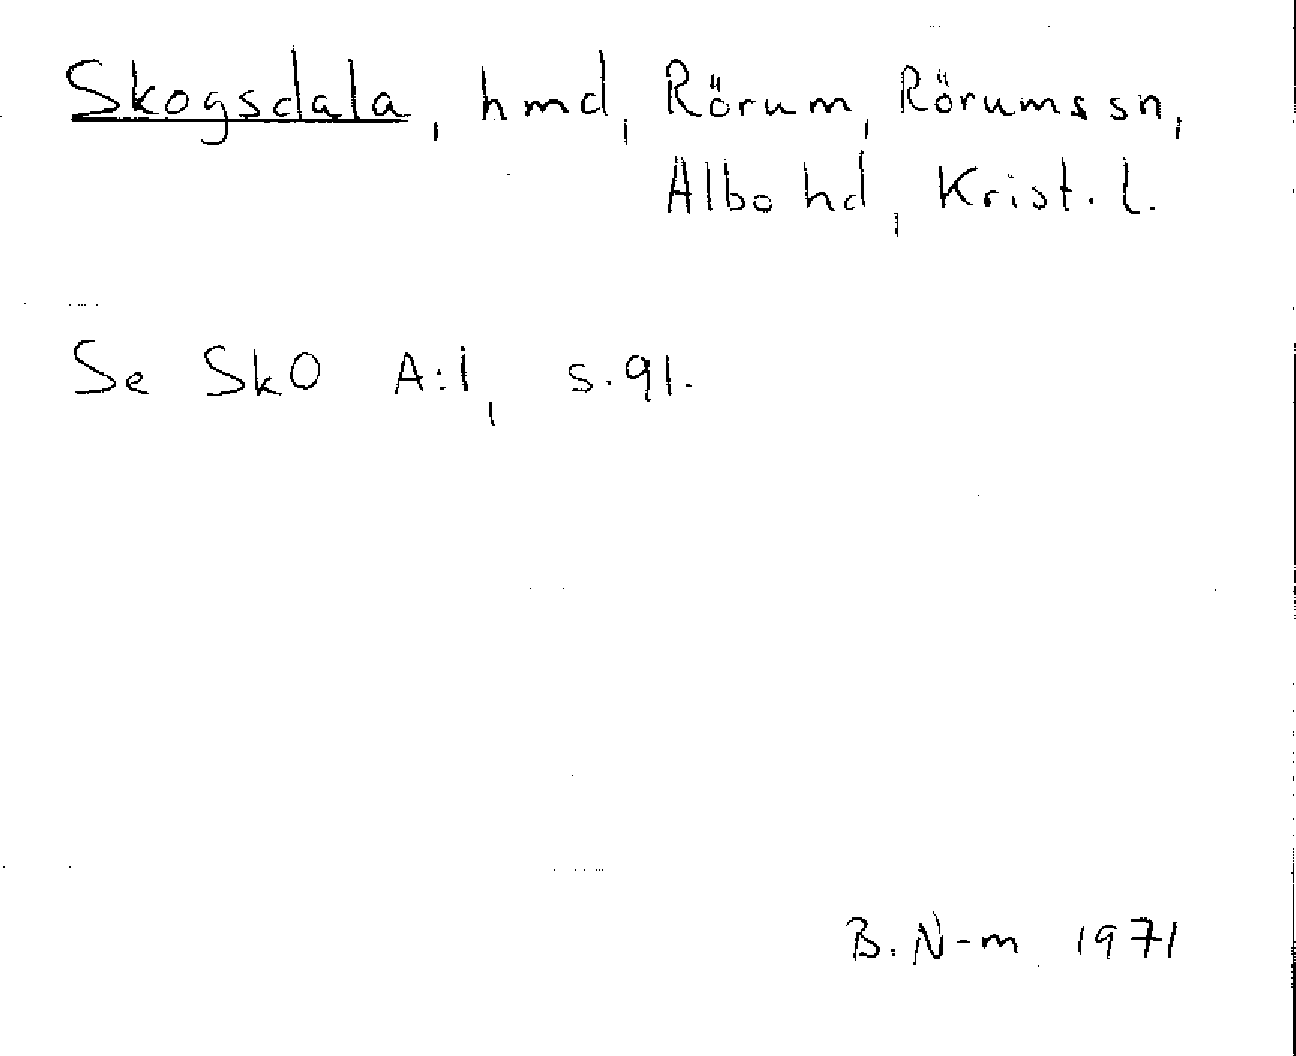 Skogsdala, hmd, Rörum, Rörums sn,
Albo hd, Krist. l.
Se SkO A:1, s. 91.
B. N-m 1971